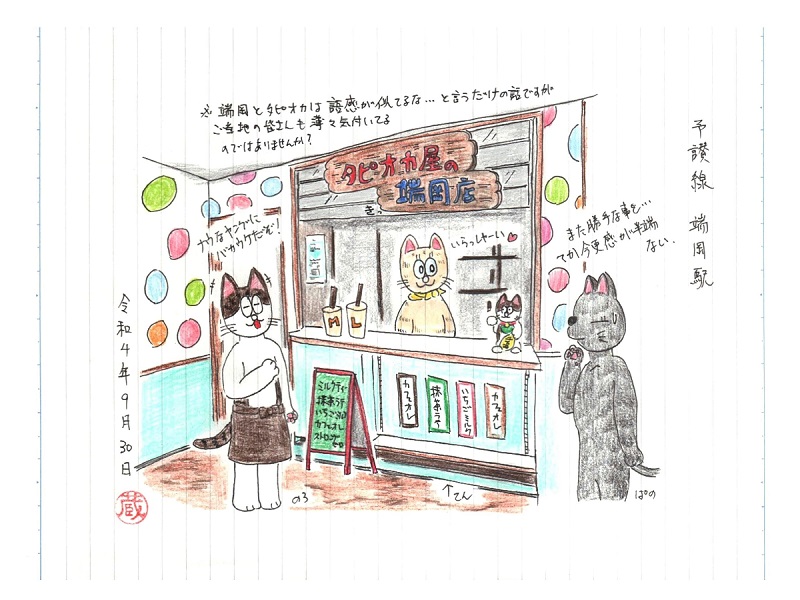 予讃線 端岡駅
※ 端岡とタピオカは 語感が似てるな… と言うだけの話ですが
ご当地の皆さんも薄々気付いてる
のではありませんか?
タピオカ屋の
端岡店
ナウなヤングに
バカウケだぞ!
いらっしゃーい♥
また勝手な事を…
てか今更感が半端
ない.
M L
ミルクティー
抹茶ラテ
いちごミルク
カフェオレ
カフェオレ
抹茶ラテ
いちごミルク
カフェオレ
のろ
↑てん
ぱの
令和4年9月30日
蔵